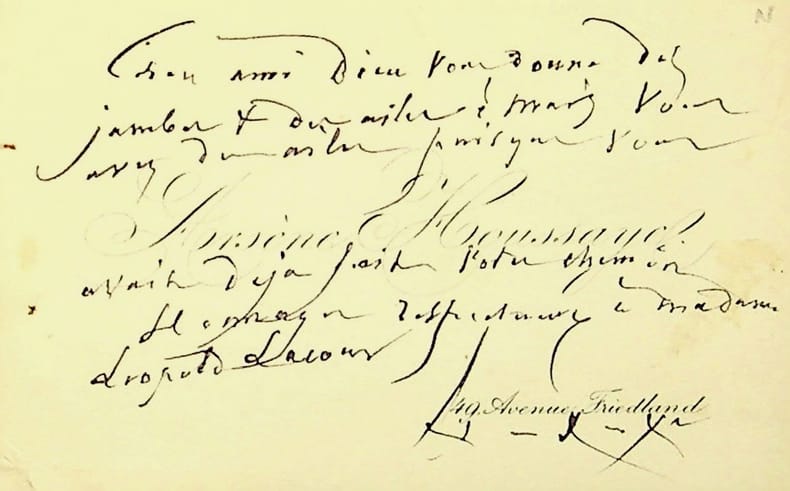 Cher ami Dieu vous donne des
jambes & des ailes mais vous
avez des ailes puisque vous
Arsène Houssaye
avait déjà fait votre chemin
Hommages respectueux à madame
Léopold Lacour
49 Avenue Friedland